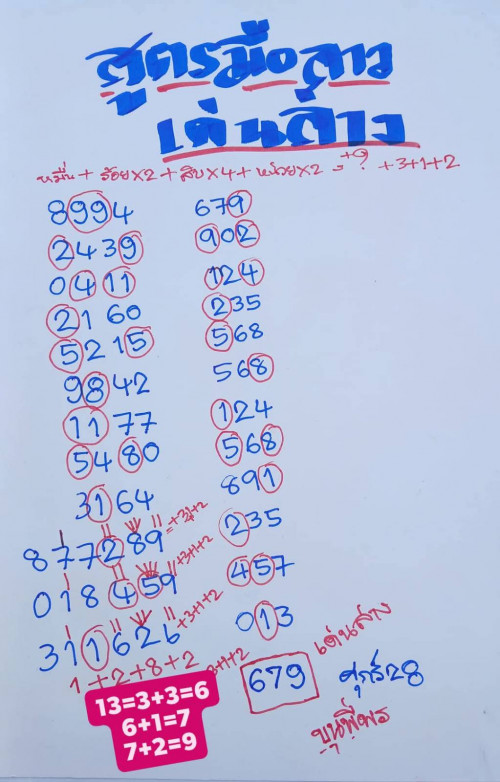 สูตรมือลาว
เด่นล่าง
หมื่น + ร้อย×2 + สิบ×4 + หน่วย×2 = +9 ? +3+1+2
8994 679
2439 902
0411 124
2160 235
5215 568
9842 568
1177 124
5480 568
3164 891
877289 =+3+1+2 235
018459 +3+1+2 457
311626 +3+1+2 013
1+2+8+2 3+1+2
679 เด่นล่าง
ศุกร์28
ขุนพี่พร
13=3+3=6
6+1=7
7+2=9